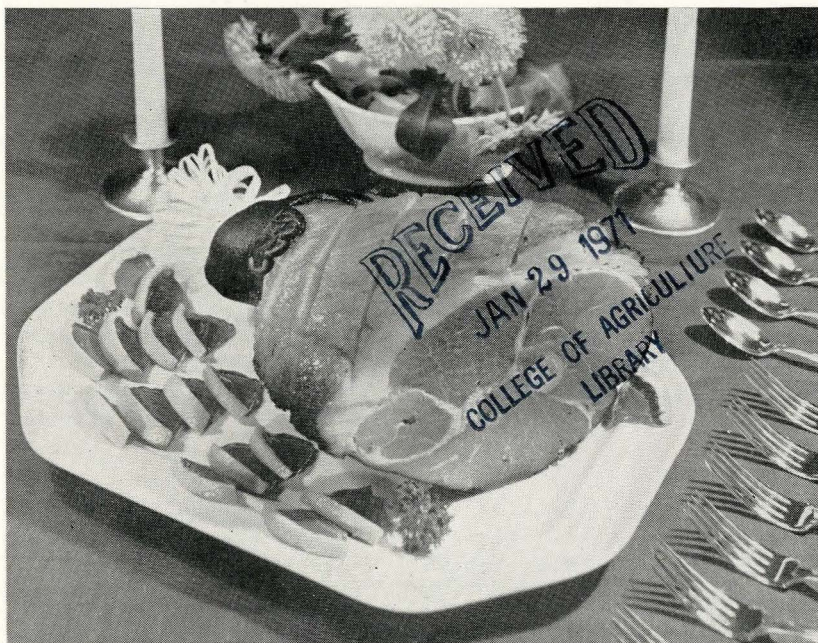 RECEIVED
JAN 29 1971
COLLEGE OF AGRICULTURE
LIBRARY